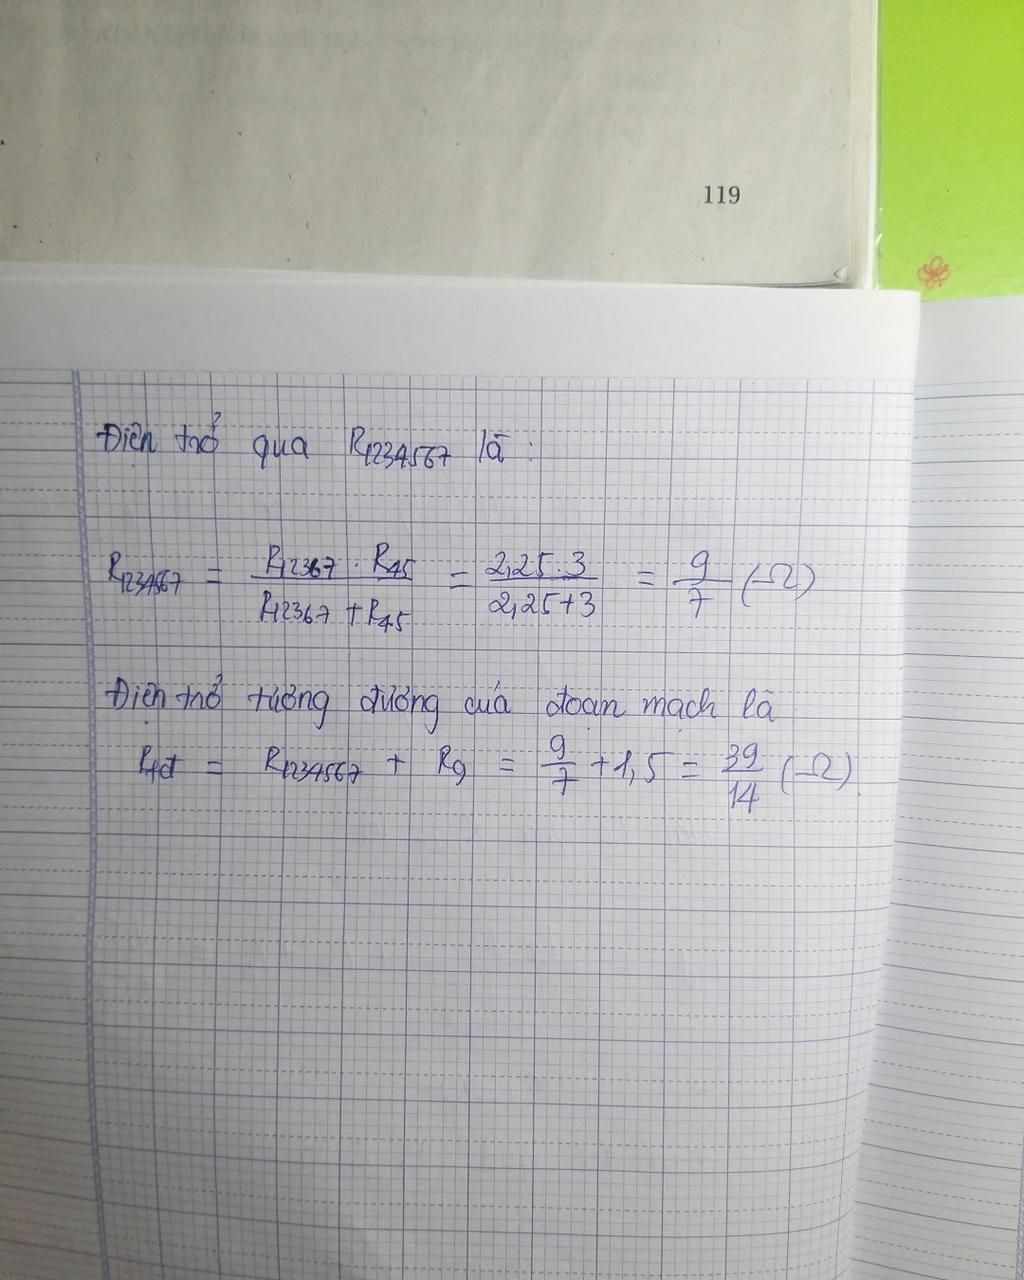 119
Điện trở qua R1234567 là :
R1234567 = R12367 . R45 / R12367 + R45 = 2,25 . 3 / 2,25 + 3 = 9/7 (Ω)
Điện trở tương đương của đoạn mạch là
Rtđ = R1234567 + R9 = 9/7 + 1,5 = 39/14 (Ω)